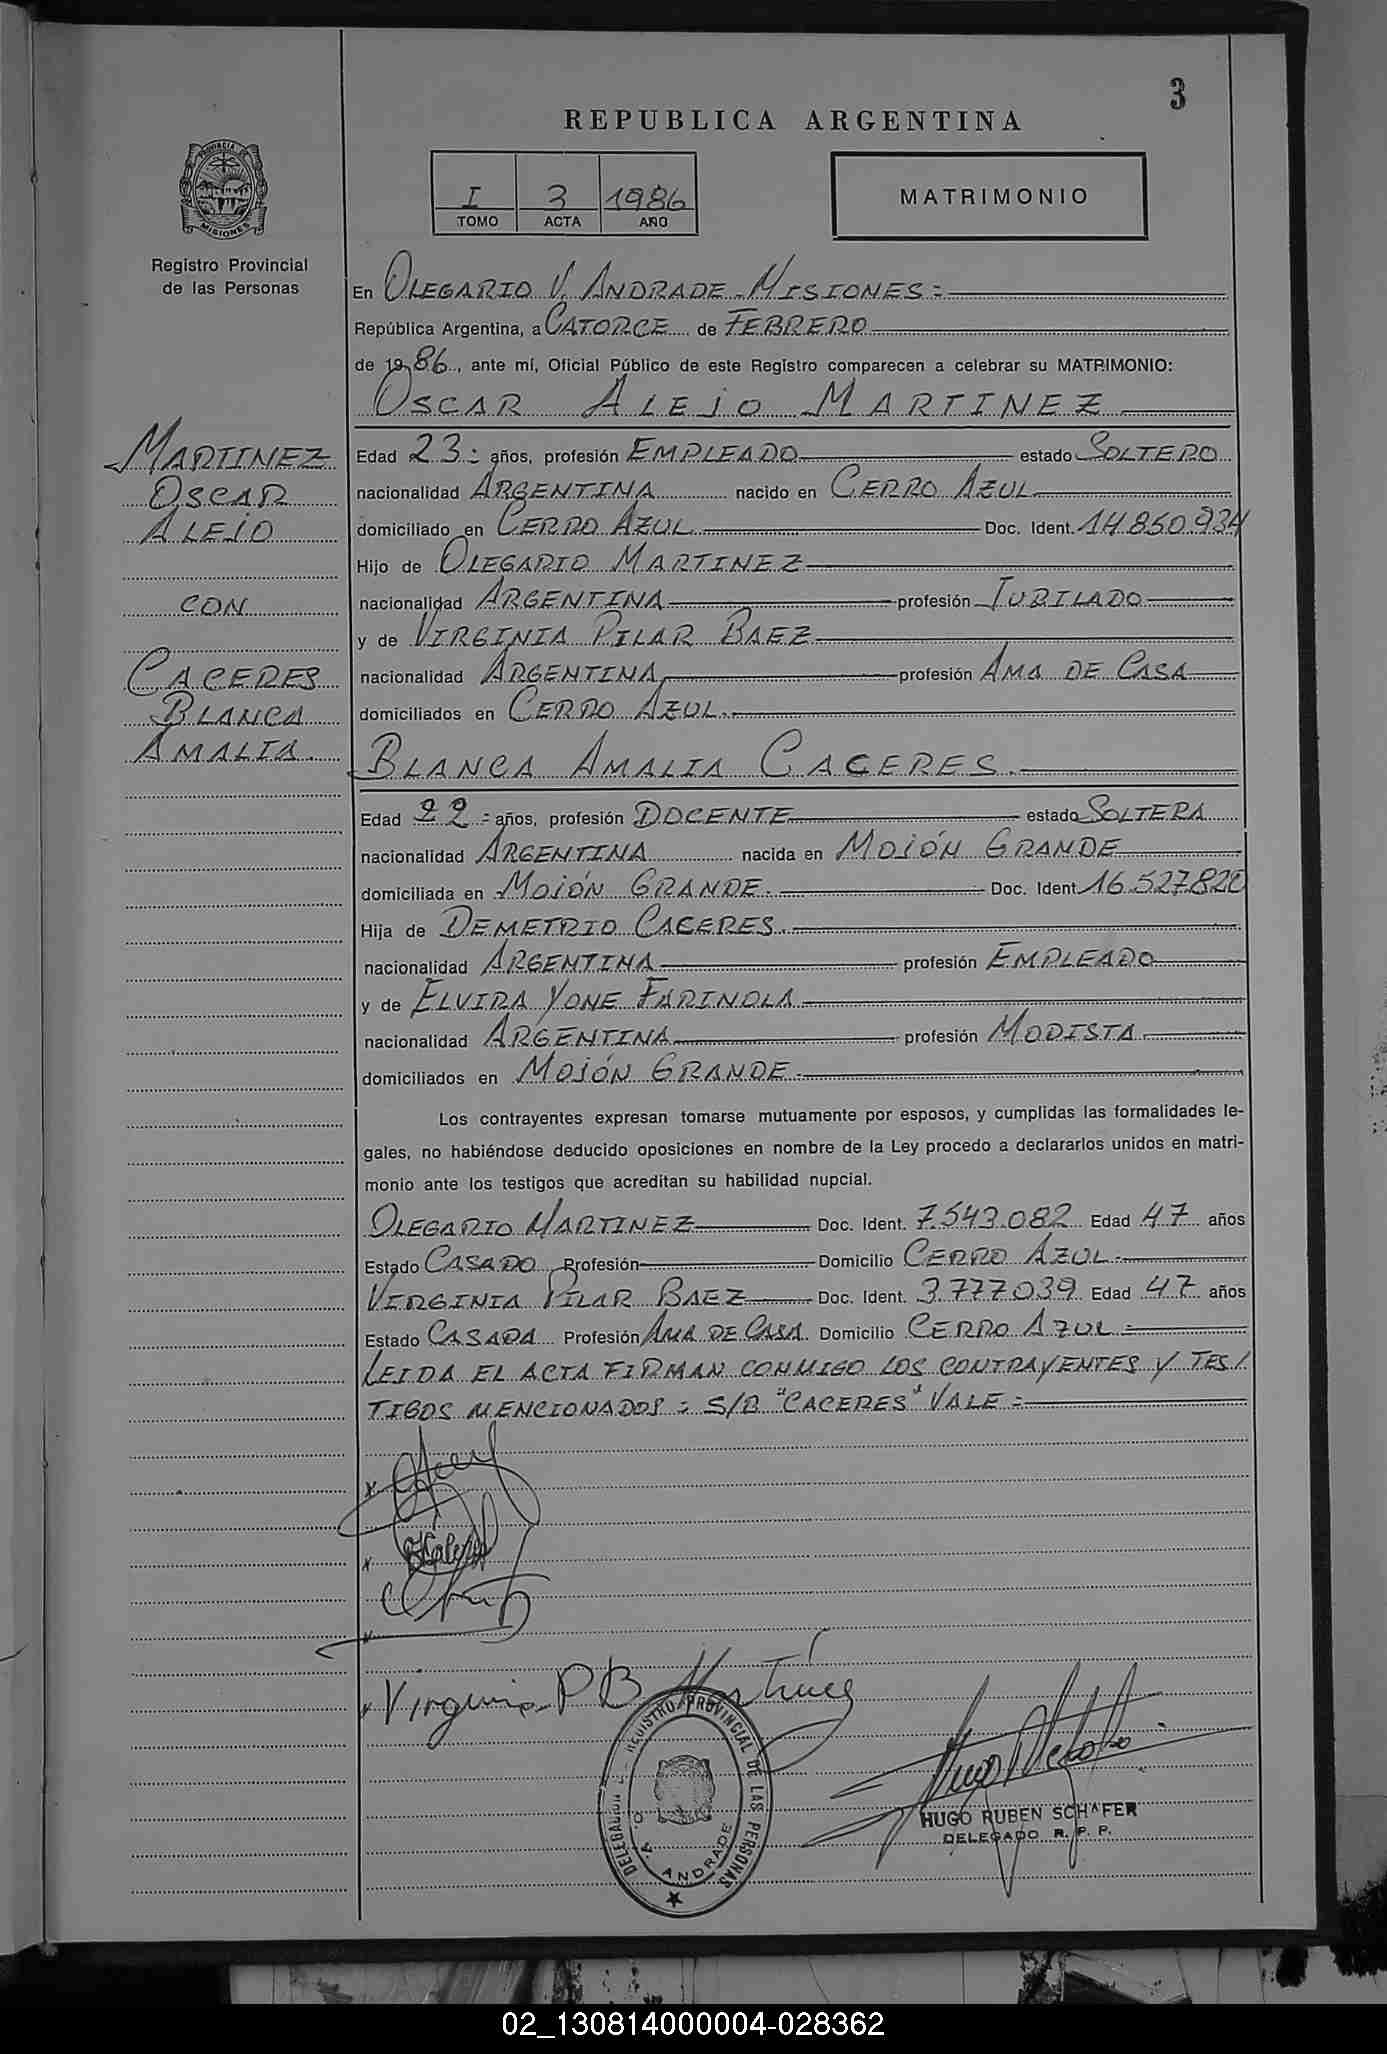 3
REPUBLICA ARGENTINA
I 3 1986
TOMO ACTA AÑO
MATRIMONIO
PROVINCIA DE MISIONES
Registro Provincial
de las Personas
En OLEGARIO V. ANDRADE - MISIONES =
República Argentina, a CATORCE de FEBRERO
de 1986, ante mí, Oficial Público de este Registro comparecen a celebrar su MATRIMONIO:
OSCAR ALEJO MARTINEZ
MARTINEZ
OSCAR
ALEJO
CON
CACERES
BLANCA
AMALIA.
Edad 23 = años, profesión EMPLEADO estado SOLTERO
nacionalidad ARGENTINA nacido en CERRO AZUL
domiciliado en CERRO AZUL Doc. Ident. 14.850.934
Hijo de OLEGARIO MARTINEZ
nacionalidad ARGENTINA profesión JUBILADO
y de VIRGINIA PILAR BAEZ
nacionalidad ARGENTINA profesión AMA DE CASA
domiciliados en CERRO AZUL.
BLANCA AMALIA CACERES.
Edad 22 = años, profesión DOCENTE estado SOLTERA
nacionalidad ARGENTINA nacida en MOJÓN GRANDE
domiciliada en MOJÓN GRANDE. Doc. Ident. 16.527.820
Hija de DEMETRIO CACERES.
nacionalidad ARGENTINA profesión EMPLEADO
y de ELVIRA YONE FARINOLA
nacionalidad ARGENTINA profesión MODISTA
domiciliados en MOJÓN GRANDE.
Los contrayentes expresan tomarse mutuamente por esposos, y cumplidas las formalidades le-
gales, no habiéndose deducido oposiciones en nombre de la Ley procedo a declararlos unidos en matri-
monio ante los testigos que acreditan su habilidad nupcial.
OLEGARIO MARTINEZ Doc. Ident. 7.543.082 Edad 47 años
Estado CASADO Profesión Domicilio CERRO AZUL.
VIRGINIA PILAR BAEZ Doc. Ident. 3.777.039 Edad 47 años
Estado CASADA Profesión AMA DE CASA. Domicilio CERRO AZUL =
LEIDA EL ACTA FIRMAN CONMIGO LOS CONTRAYENTES Y TES/
TIGOS MENCIONADOS = S/B "CACERES" VALE =
Virginia P B Martínez
REGISTRO PROVINCIAL DE LAS PERSONAS
DELEGACION
O. V. ANDRADE
HUGO RUBEN SCHAFER
DELEGADO R. P. P.
02_130814000004-028362